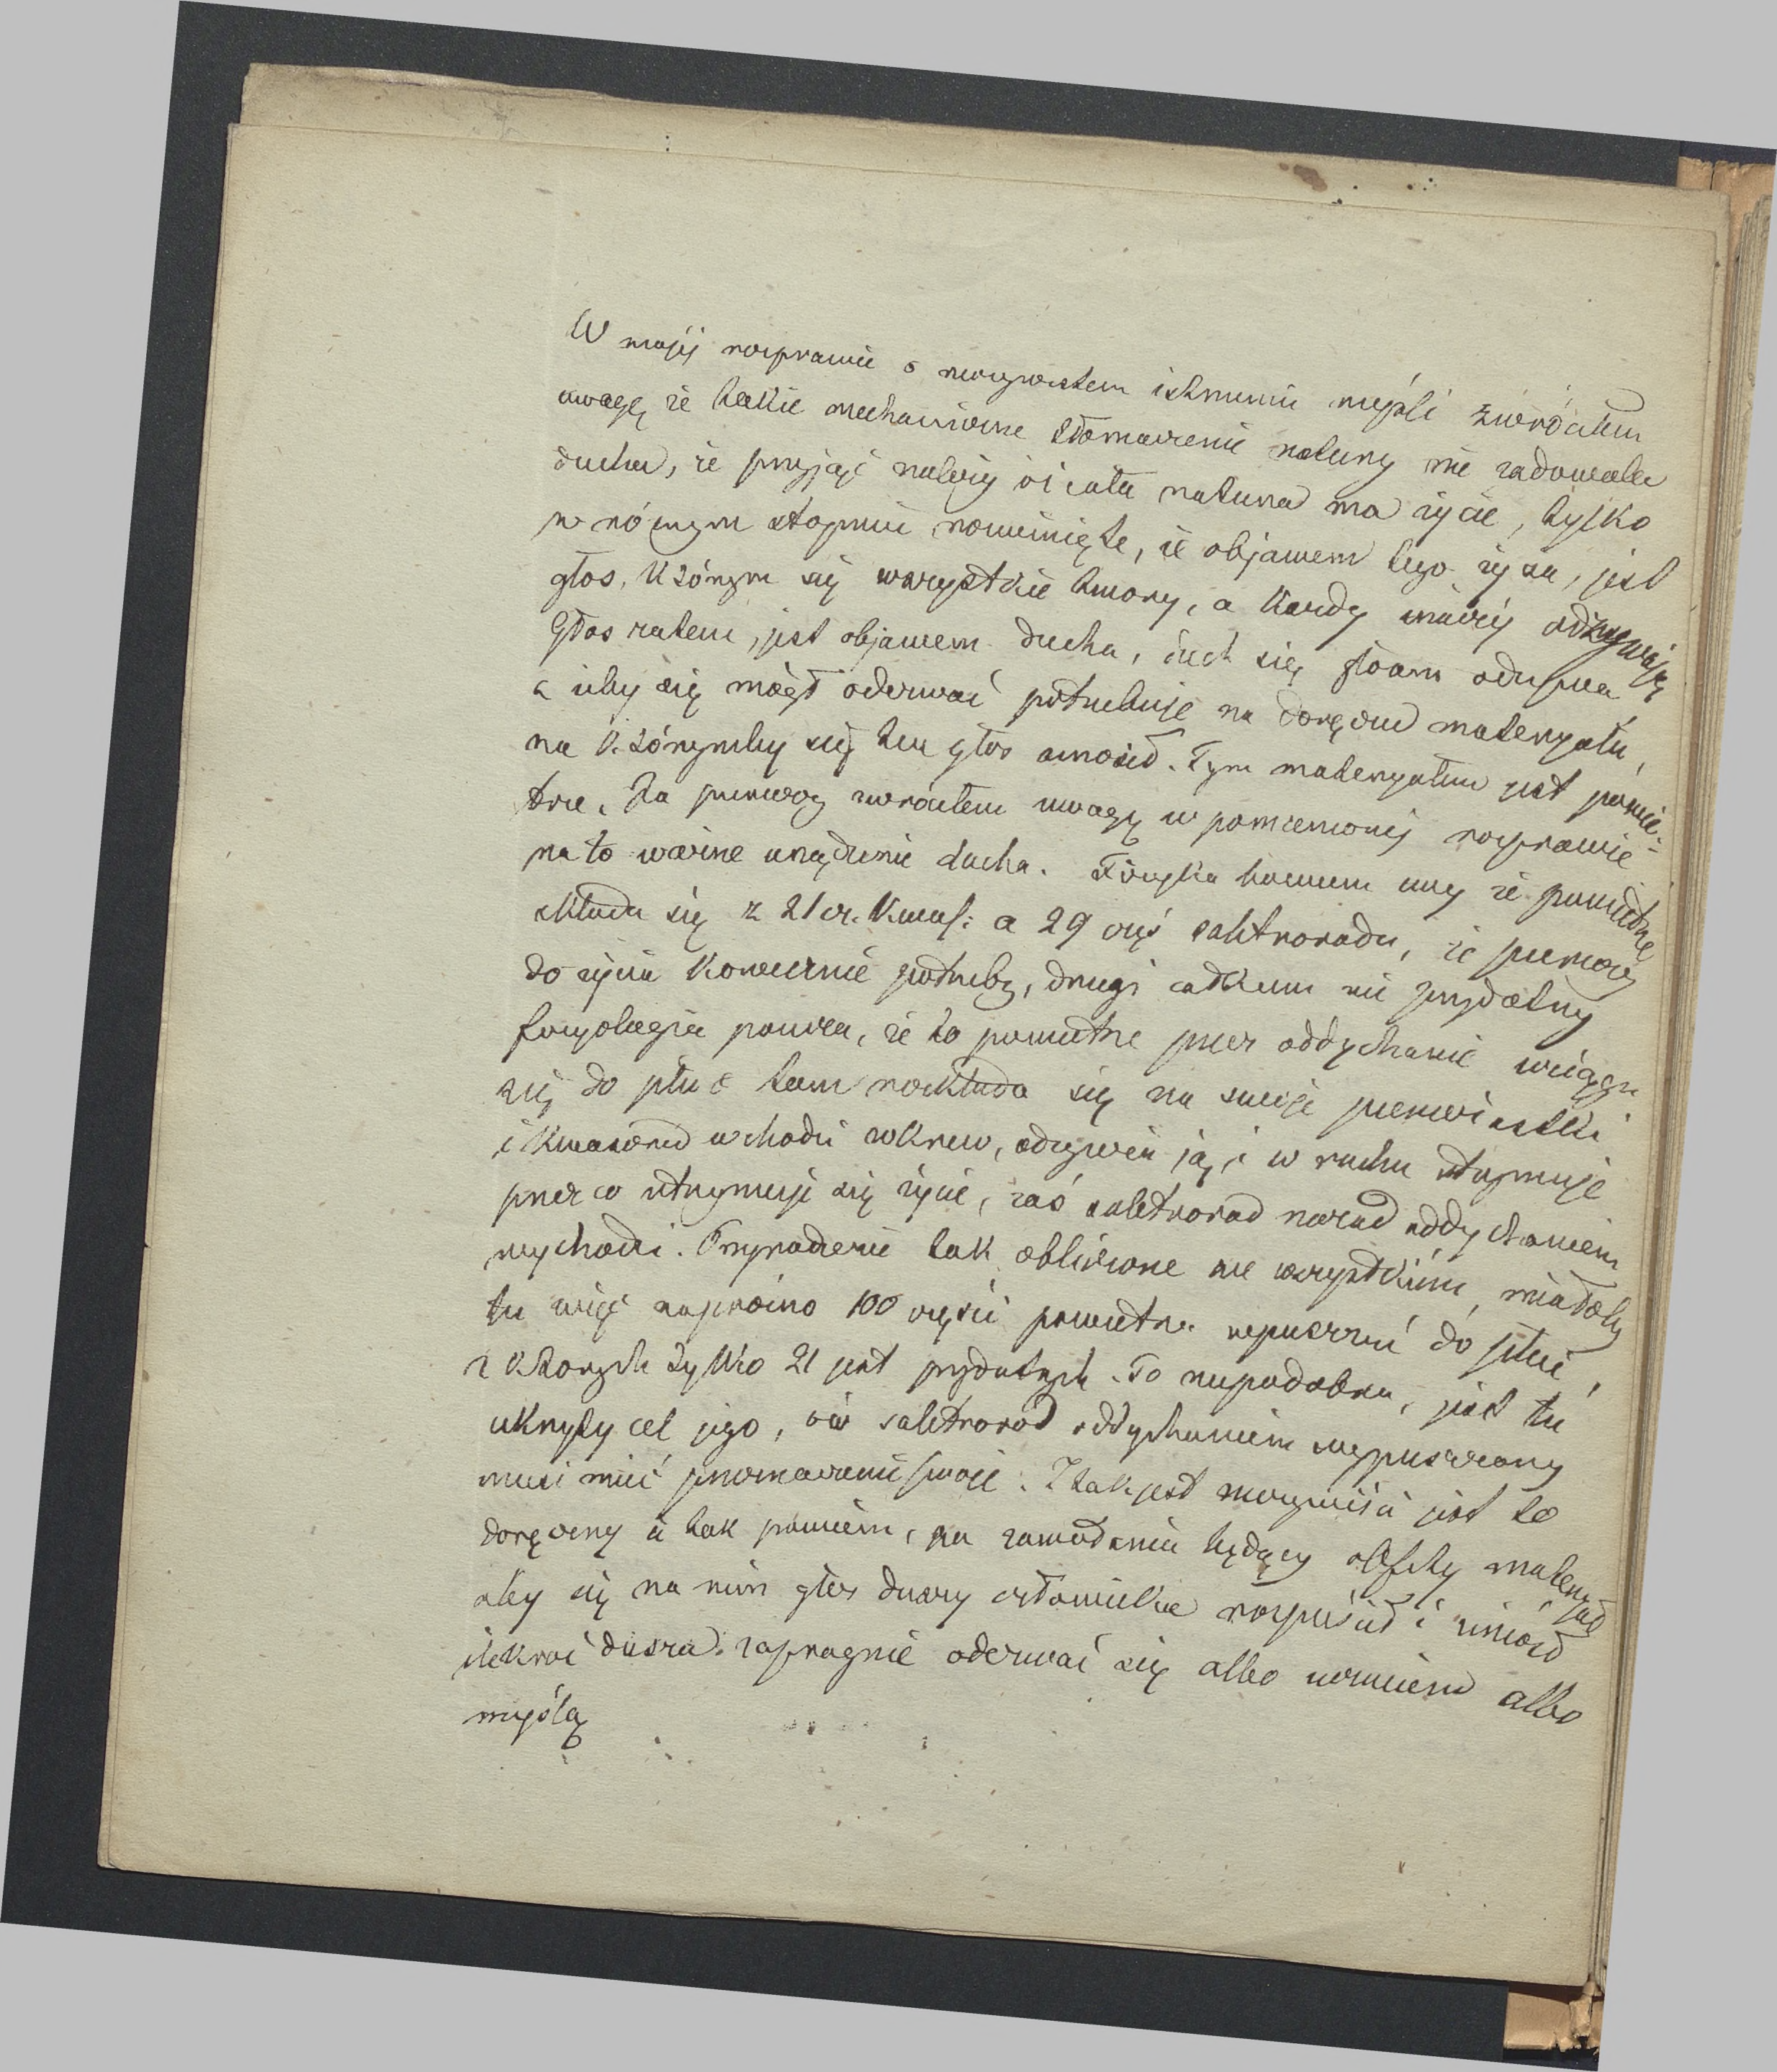 W mojéj rozprawie o rzeczywistem istnieniu myśli zwróciłem
uwagę że takie mechaniczne tłomaczenie natury nie zadowala
ducha, że przyjąć należy iż cała natura ma życie, tylko
w różnym stopniu rozwinięte, że objawem tego życia, jest
głos, którym się wszystkie twory, a każdy inaczéj odzywają
Głos zatem, jest objawem ducha, duch się głosem odzywa
a żeby się mógł oderwać potrzebuje na doręczu materyału,
na którymby się ten głos unosił. Tym materyałem jest powie-
trze. Ja pierwszy zwróciłem uwagę w pomienionéj rozprawie
na to ważne urządzenie ducha. Fizyka bowiem uczy że powietrze
składa się z 21 cz. kwas: a 29 częś saletrorodu, że pierwszy
do życia koniecznie potrzebny, drugi całkiem nie przydatny
fizyologia poucza, że to powietrze przez oddychanie wciąga
się do płuc tam rozkłada się na swoje pierwiastki
i kwasoród wchodzi w krew, odżywia ją, i w ruchu utrzymuje
przez co utrzymuje się życie, zaś saletroród nazad oddychaniem
wychodzi. Przyrodzenie tak obliczone we wszystkiém, miałoby
tu więc napróżno 100 części powietrza wpuszczać do płuc,
z których tylko 21 jest przydatnych. To niepodobna, jest tu
ukryty cel jego, ów saletroród oddychaniem wypuszczony
musi mieć przeznaczenie swoje. I tak jest rzeczywiście jest to
doręczny że tak powiem, na zawołaniu będący obfity materyał
aby się na nim głos duszy człowieka rozpuścił i unosił
ilekroć dusza zapragnie oderwać się albo uczuciem albo
myślą